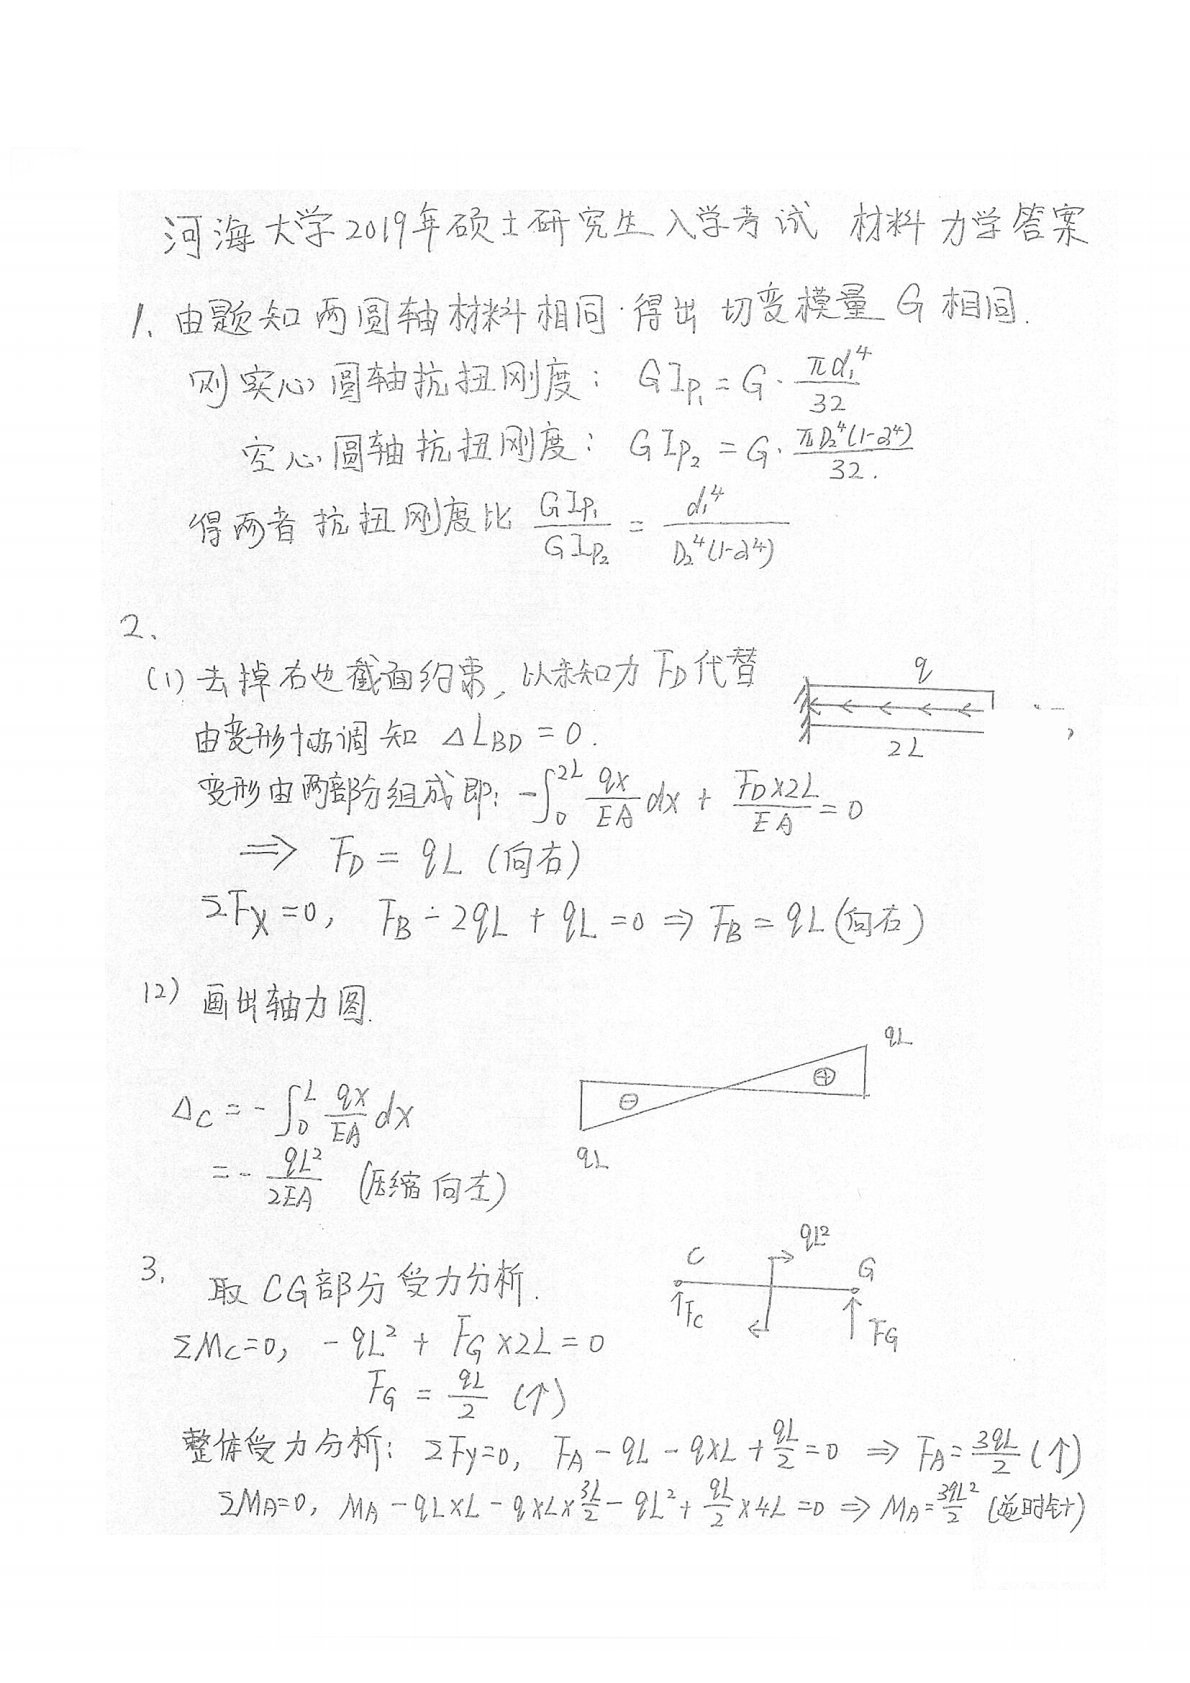 河海大学2019年硕士研究生入学考试 材料力学答案
1、由题知两圆轴材料相同·得出 切变模量 G 相同.
则实心圆轴抗扭刚度： GIp₁ = G · πd₁⁴/32
空心圆轴抗扭刚度： GIp₂ = G · πD₂⁴(1-α⁴)/32.
得两者抗扭刚度比 GIp₁/GIp₂ = d₁⁴/D₂⁴(1-α⁴)
2、
(1) 去掉右边截面约束, 以未知力 F_D 代替
q
2L
由变形协调知 ΔL_BD = 0.
变形由两部分组成即: -∫₀^2L qx/EA dx + F_D×2L/EA = 0
⟹ F_D = qL (向右)
ΣFx = 0, F_B - 2qL + qL = 0 ⇒ F_B = qL (向右)
(2) 画出轴力图.
qL
⊕
⊖
qL
Δ_C = -∫₀^L qx/EA dx
= - qL²/2EA (压缩向左)
3. 取 CG部分受力分析.
C
qL²
G
↑F_C
F_G
ΣM_C=0, -qL² + F_G×2L = 0
F_G = qL/2 (↑)
整体受力分析: ΣFy=0, F_A - qL - q×L + qL/2 = 0 ⇒ F_A = 3qL/2 (↑)
ΣM_A=0, M_A - qL×L - q×L×3L/2 - qL² + qL/2×4L = 0 ⇒ M_A = 3qL²/2 (逆时针)